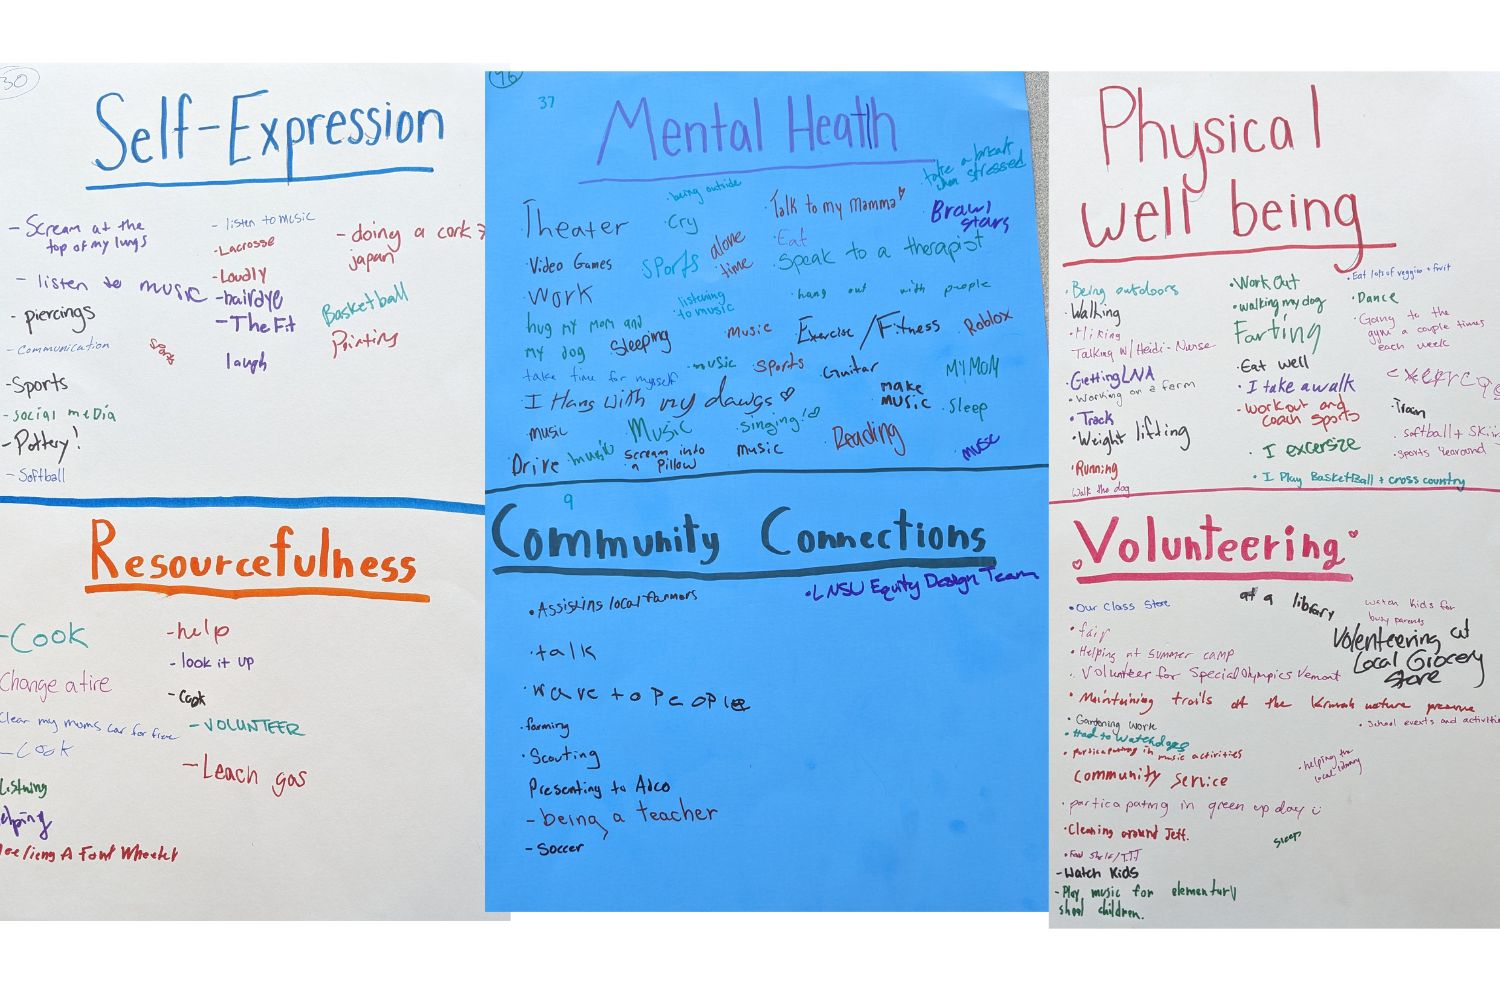 30
Self-Expression
- Scream at the
top of my lungs
- listen to music
- piercings
- Communication
Sports
- Sports
- social media
- Pottery!
- Softball
- listen to music
- Lacrosse
- Loudly
- hairdye
- The Fit
laugh
- doing a
japan
Basketball
Painting
Resourcefulness
- Cook
Change a tire
Clear my moms car for free
- Cook
Listning
elping
A Four Wheeler
- help
- look it up
- Cook
- VOLUNTEER
- Leach gas
76
37
Mental Health
· being outside
take a break
when stressed
Theater
· Cry
· Talk to my Mamma
Brawl
stars
· Video Games
Sports
alone
time
· Eat
· Speak to a therapist
· Work
listening
to music
· hang out with people
hug my mom and
my dog
Sleeping
· Music
Exercise / Fitness
Roblox
take time for myself
· music
sports
· Guitar
MY MOM
· I Hang with my dawgs
make
music
· Sleep
· music
· Music
· singing!
Drive
music
scream into
a pillow
music
Reading
music
9
Community Connections
· LNSU Equity Design Team
· Assisting local farmers
· talk
· wave to people
· farming
· Scouting
Presenting to Adco
- being a teacher
- Soccer
Physical
well being
· Being outdoors
· Walking
· Hiking
Talking w/ Heidi-Nurse
· Getting LNA
· Working on a farm
· Track
· Weight lifting
· Running
Walk the dog
· Work Out
· walking my dog
Farting
· Eat well
· I take a walk
- workout and
coach sports
· I excersize
· I Play Basketball + cross country
· Eat lots of veggies + fruit
· Dance
· Going to the
gym a couple times
each week
· Train
· softball +
· sports yearound
Volunteering
· Our class store
· fair
· Helping at summer camp
· Volunteer for Special Olympics Vemont
· Maintaining trails at the nature preserve
· Gardening work
· Had to watch dogs
· particapating in music activities
Community service
· particapating in green up day
· Cleaning around Jeff.
- Watch Kids
- Play music for elementury
shool children.
at a library
watch kids for
busy parents
Volenteering at
Local Grocery
store
· School events and activities
· helping the
local library
sleep